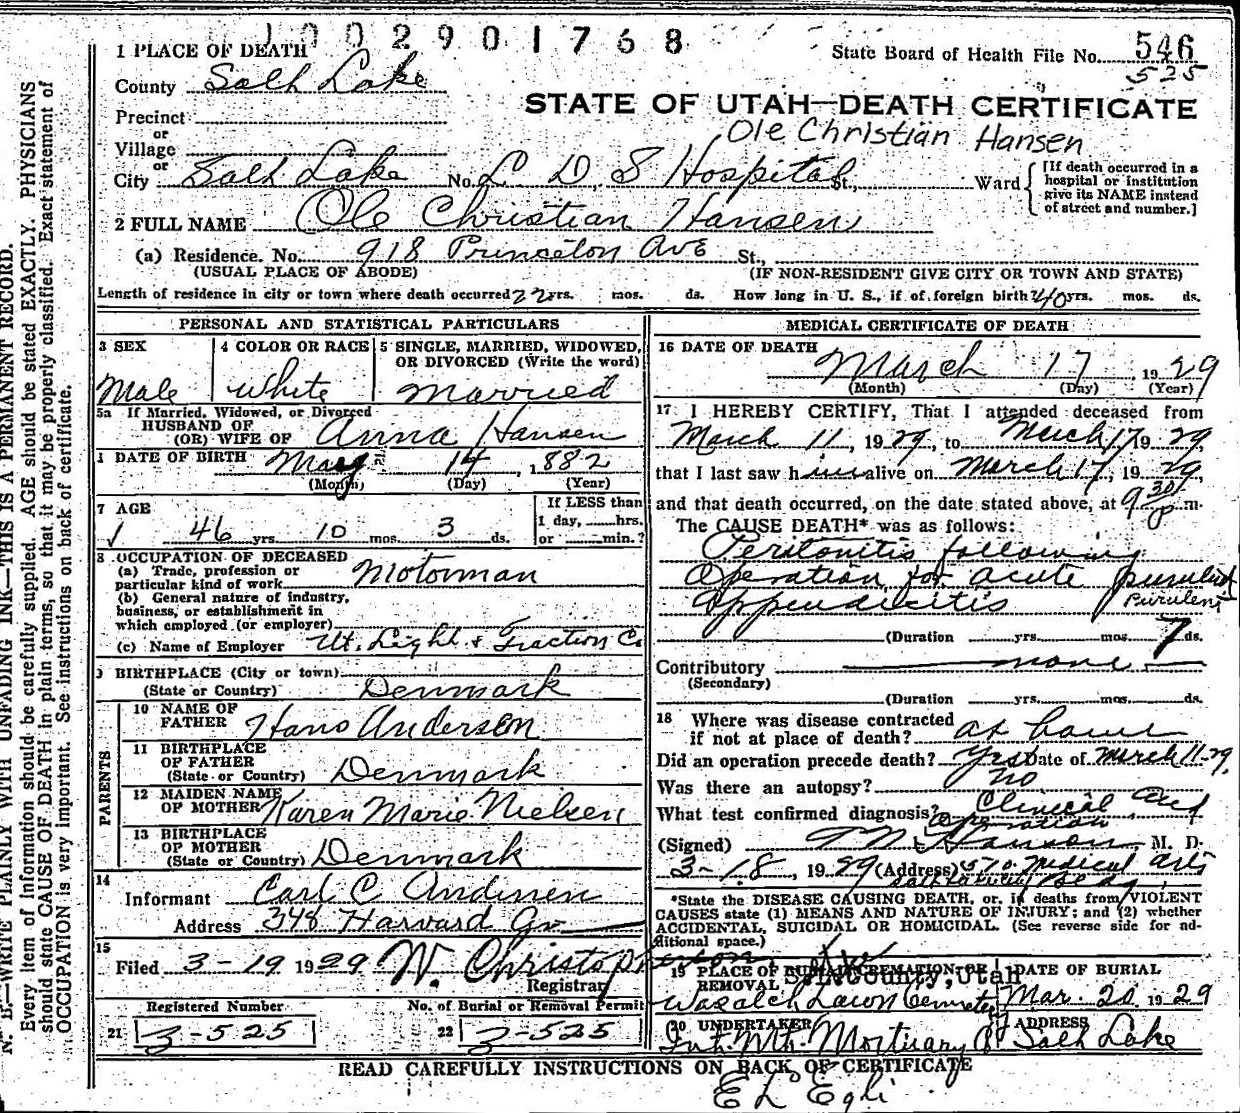 1002901768
1 PLACE OF DEATH
State Board of Health File No. 546
525
County Salt Lake
STATE OF UTAH—DEATH CERTIFICATE
Precinct
or
Ole Christian Hansen
Village
or
City Salt Lake No. L D S Hospital St., Ward
[If death occurred in a hospital or institution give its NAME instead of street and number.]
2 FULL NAME Ole Christian Hansen
(a) Residence. No. 918 Princeton Ave St.,
(USUAL PLACE OF ABODE) (IF NON-RESIDENT GIVE CITY OR TOWN AND STATE)
Length of residence in city or town where death occurred 22 yrs. mos. ds. How long in U. S., if of foreign birth? 40 yrs. mos. ds.
PERSONAL AND STATISTICAL PARTICULARS
3 SEX 4 COLOR OR RACE 5 SINGLE, MARRIED, WIDOWED, OR DIVORCED (Write the word)
Male White Married
5a If Married, Widowed, or Divorced
HUSBAND OF
(OR) WIFE OF Anna Hansen
DATE OF BIRTH May 14, 1882
(Month) (Day) (Year)
7 AGE
If LESS than
1 day, hrs.
46 yrs 10 mos. 3 ds. or min.?
8 OCCUPATION OF DECEASED
(a) Trade, profession or
particular kind of work Motorman
(b) General nature of industry,
business, or establishment in
which employed (or employer)
(c) Name of Employer Ut. Light & Traction Co.
9 BIRTHPLACE (City or town)
(State or Country) Denmark
PARENTS
10 NAME OF
FATHER Hans Andersen
11 BIRTHPLACE
OF FATHER
(State or Country) Denmark
12 MAIDEN NAME
OF MOTHER Karen Marie Nielsen
13 BIRTHPLACE
OF MOTHER
(State or Country) Denmark
14
Informant Carl C Andersen
Address 348 Harvard
15
Filed 3-19 1929 W. Christopherson
Registrar
Registered Number No. of Burial or Removal Permit
21 3-525 22 3-525
MEDICAL CERTIFICATE OF DEATH
16 DATE OF DEATH
March 17, 1929
(Month) (Day) (Year)
17 I HEREBY CERTIFY, That I attended deceased from
March 11, 1929, to March 17 1929,
that I last saw him alive on March 17, 1929,
and that death occurred, on the date stated above, at 9 30 p m.
The CAUSE DEATH* was as follows:
Peritonitis following
Operation for acute purulent
Appendicitis purulent
(Duration yrs. mos. 7 ds.
Contributory none
(Secondary)
(Duration yrs. mos. ds.
18 Where was disease contracted
if not at place of death? at home
Did an operation precede death? Yes Date of March 11-29.
Was there an autopsy? no
What test confirmed diagnosis? Clinical and
operation
(Signed) Hanson M. D.
3-18, 1929 (Address) 570 Medical Arts
Salt Lake City Bldg.
*State the DISEASE CAUSING DEATH, or, in deaths from VIOLENT
CAUSES state (1) MEANS AND NATURE OF INJURY; and (2) whether
ACCIDENTAL, SUICIDAL OR HOMICIDAL. (See reverse side for additional space.)
19 PLACE OF BURIAL, CREMATION OR REMOVAL DATE OF BURIAL
S.L. County, Utah
Wasatch Lawn Cemetery Mar. 20 1929
20 UNDERTAKER ADDRESS
Int. Mt. Mortuary Salt Lake
READ CAREFULLY INSTRUCTIONS ON BACK OF CERTIFICATE
E L Egli
N. B.—WRITE PLAINLY WITH UNFADING INK—THIS IS A PERMANENT RECORD.
Every item of information should be carefully supplied. AGE should be stated EXACTLY. PHYSICIANS
should state CAUSE OF DEATH in plain terms, so that it may be properly classified. Exact statement of
OCCUPATION is very important. See instructions on back of certificate.